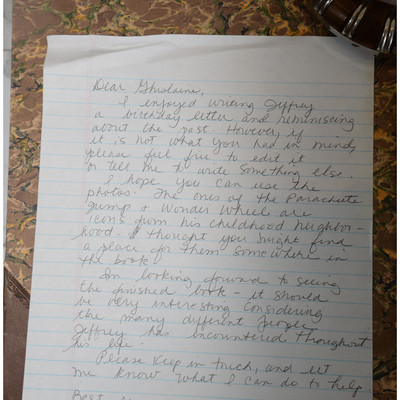 Dear Ghislaine,
I enjoyed writing Jeffrey
a birthday letter and reminiscing
about the past. However, if
it is not what you had in mind,
please feel free to edit it
or tell me to write something else.
I hope you can use the
photos. The ones of the Parachute
Jump + Wonder Wheel are
icons from his childhood neighbor-
hood. I thought you might find
a place for them somewhere in
the book!
I'm looking forward to seeing
the finished book - it should
be very interesting considering
the many different people
Jeffrey has encountered throughout
his life.
Please keep in touch, and let
me know what I can do to help.
Best